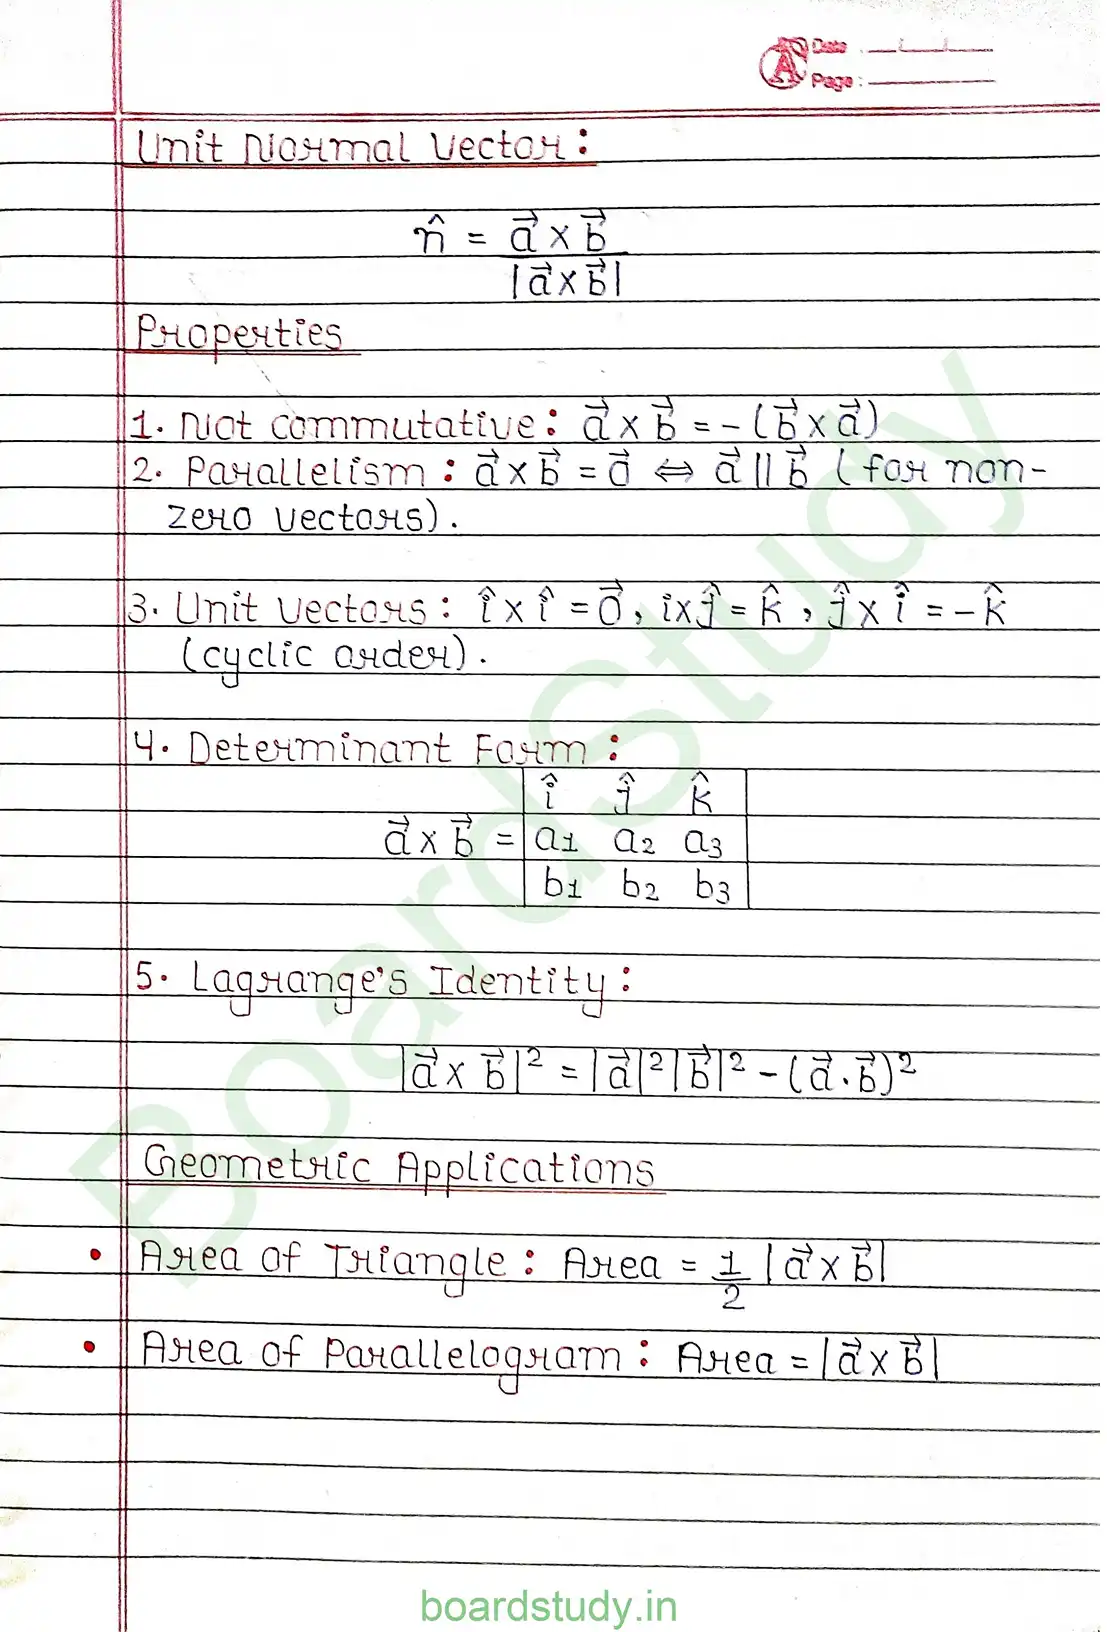 Date : __/__/__
Page : ______
Unit Normal Vector :
n̂ = a⃗ × b⃗
|a⃗ × b⃗|
Properties
1. Not commutative : a⃗ × b⃗ = - (b⃗ × a⃗)
2. Parallelism : a⃗ × b⃗ = 0⃗ ⇔ a⃗ || b⃗ ( for non-
zero vectors) .
3. Unit vectors : î × î = 0⃗ , i × ĵ = k̂ , ĵ × î = - k̂
(cyclic order) .
4. Determinant Form :
î ĵ k̂
a⃗ × b⃗ = a1 a2 a3
b1 b2 b3
5. Lagrange's Identity :
|a⃗ × b⃗|² = |a⃗|² |b⃗|² - (a⃗ . b⃗)²
Geometric Applications
• Area of Triangle : Area = 1/2 |a⃗ × b⃗|
• Area of Parallelogram : Area = |a⃗ × b⃗|
BoardStudy
boardstudy.in